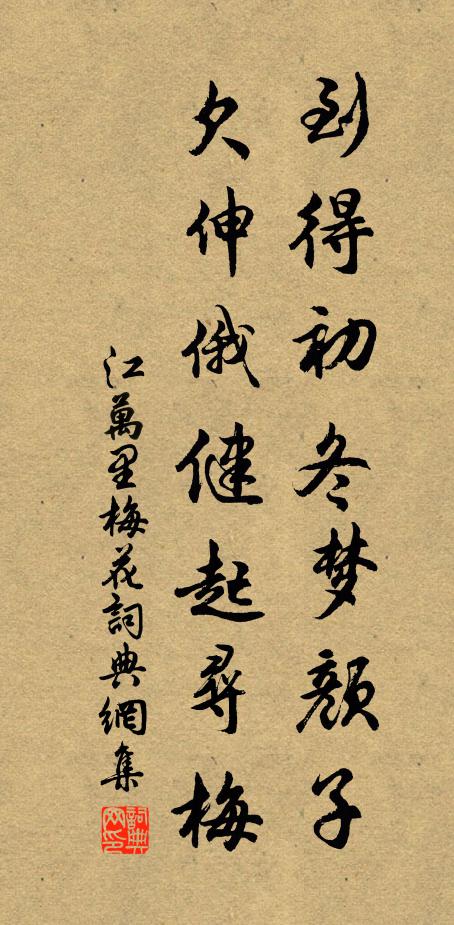 到得初冬梦颜子
欠伸俄健起尋梅
江萬里梅花詞典網集
詞典网印